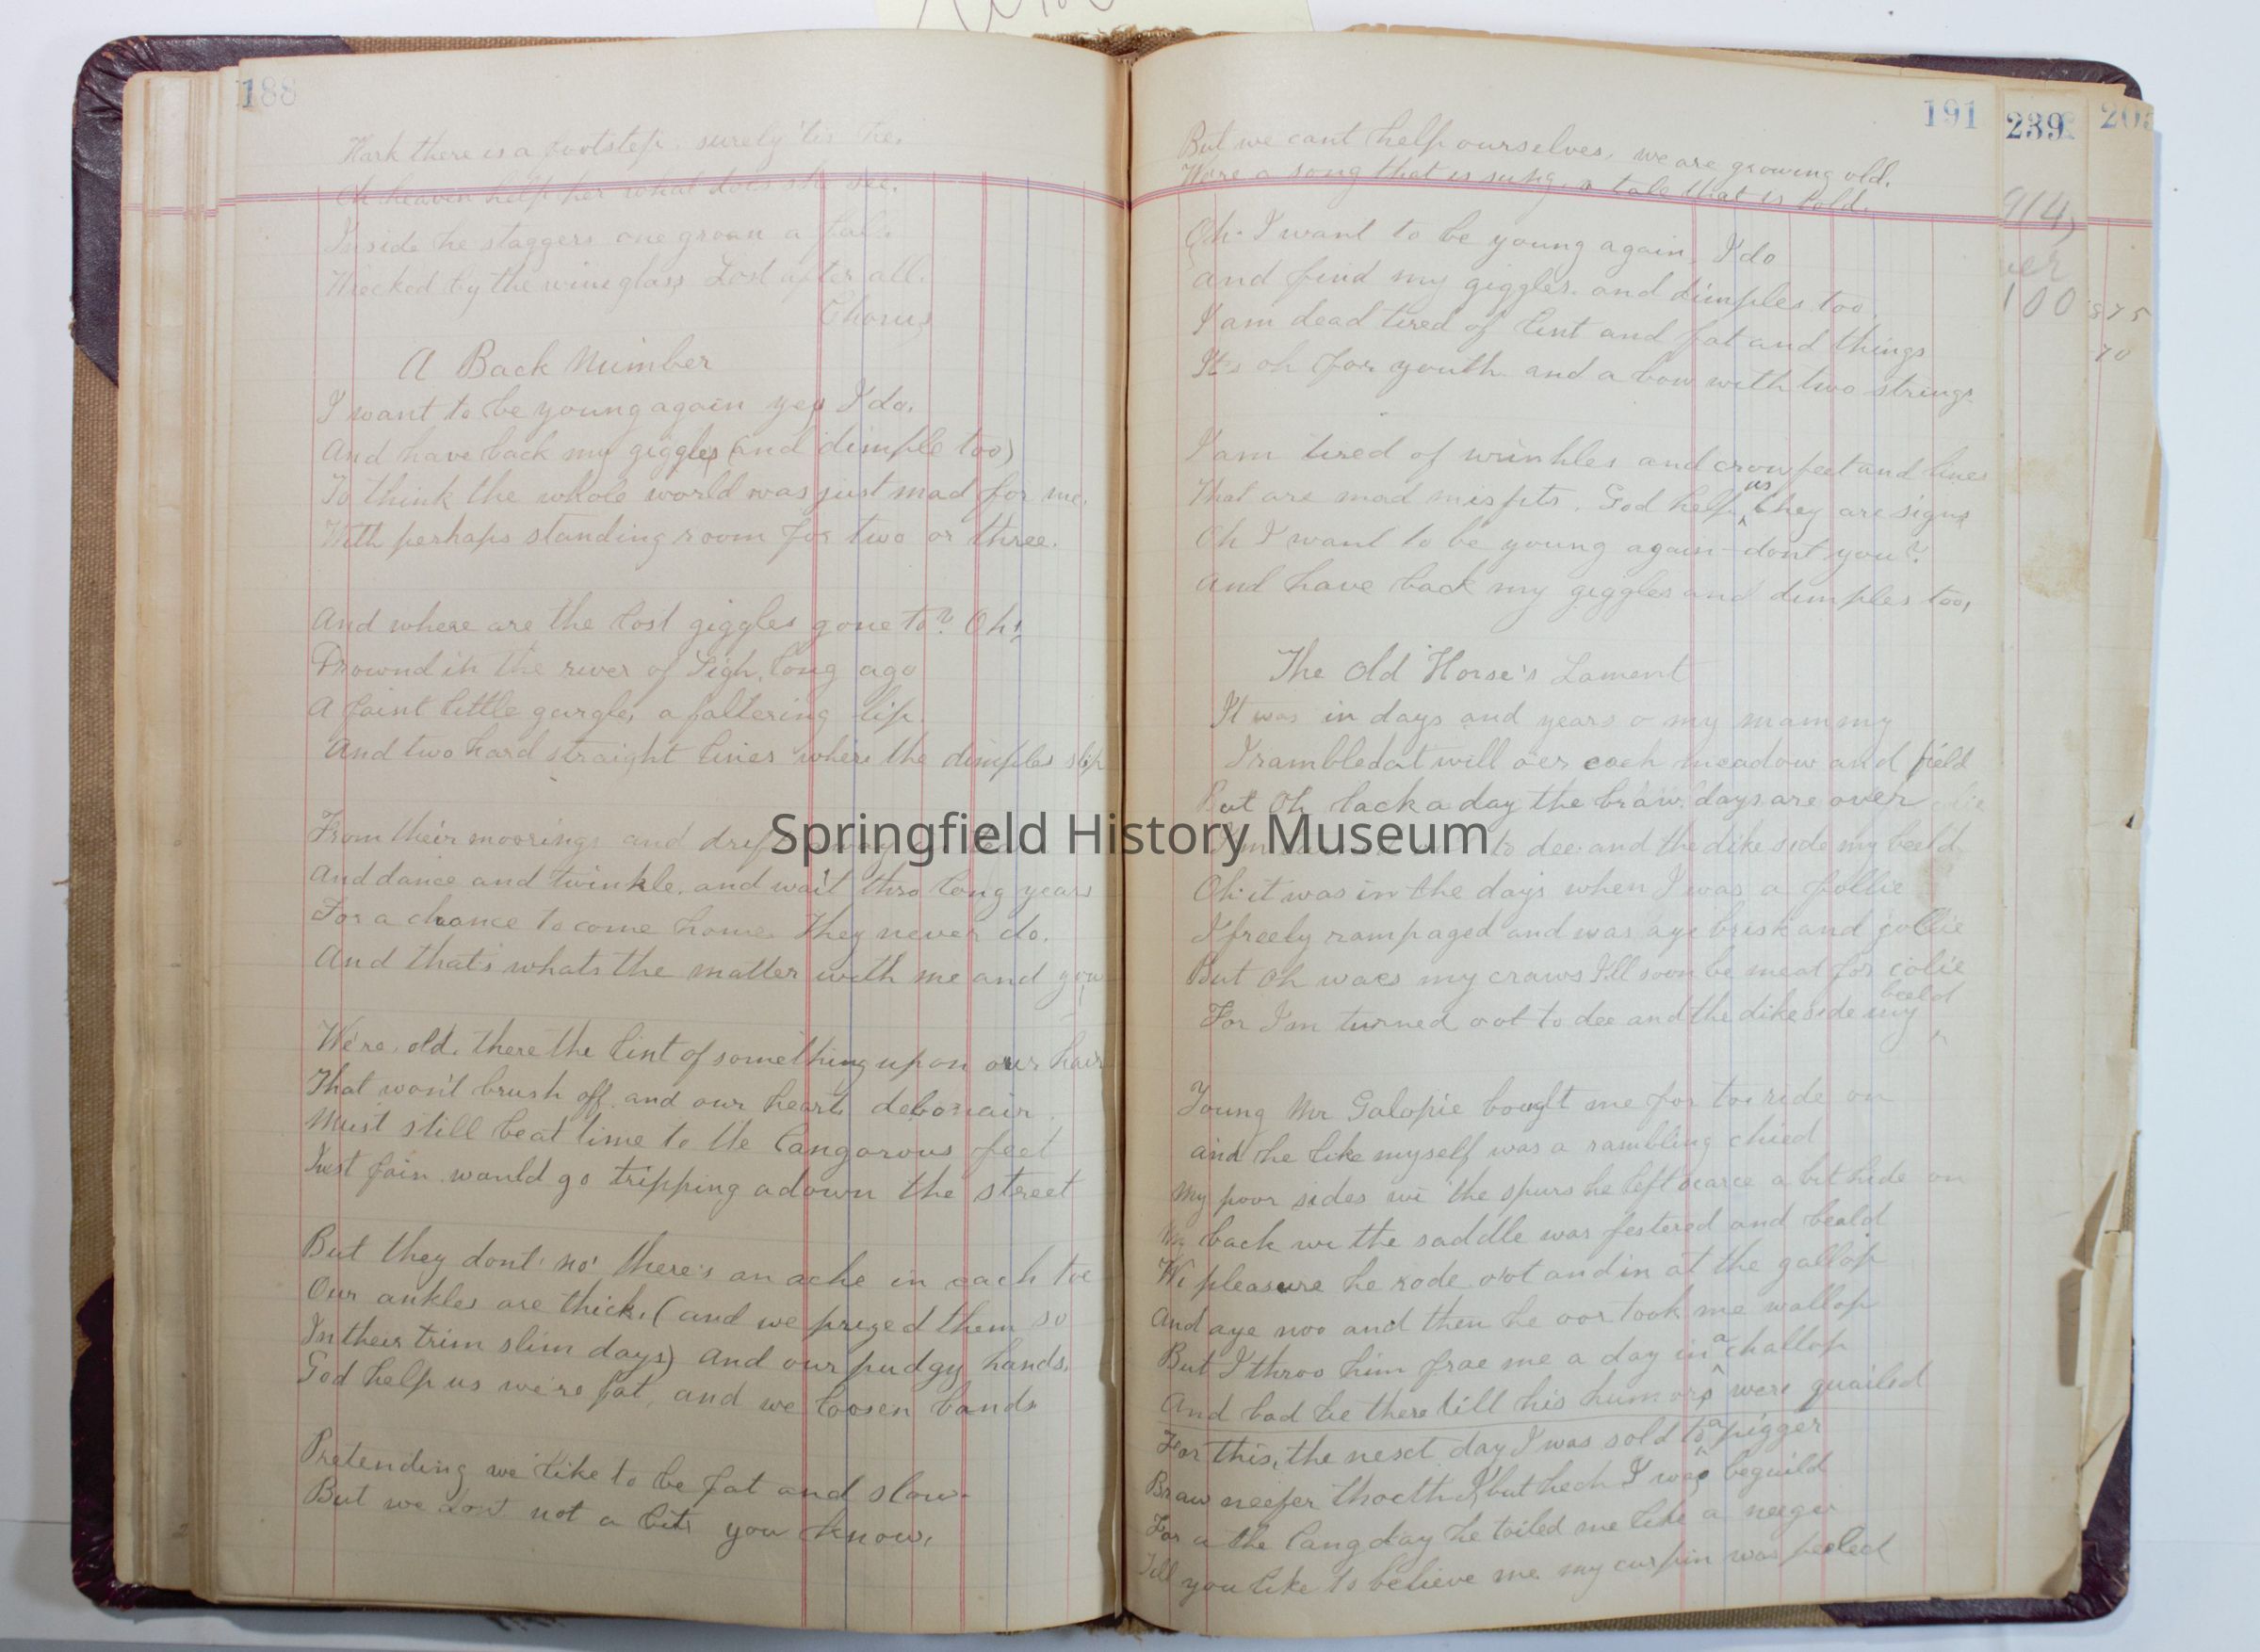 188
Hark there is a footstep. surely 'tis he.
Oh heaven help her what does she see.
Inside he staggers one groan a fall.
Wrecked by the wineglass Lost after all.
Chorus
A Back Number
I want to be young again yes I do.
And have back my giggles (and dimple too)
To think the whole world was just mad for me.
With perhaps standing room for two or three.
And where are the lost giggles gone to? Oh!
Drownd in the river of Sigh, long ago
A faint little gargle, a faltering lip.
And two hard straight lines where the dimples slip
From their moorings and drift away
And dance and twinkle. and wait thro long years
For a chance to come home They never do.
And that's whats the matter with me and you
We're old. there the lint of something upon our hair
That won't brush off and our hearts debonair.
Must still beat time to the langorous feet
Just fain would go tripping adown the street
But they dont. no' there's an ache in each toe
Our ankles are thick. (and we prized them so
In their trim slim days) And our pudgy hands.
God help us we're fat, and we loosen bands
Pretending we like to be fat and slow.
But we don't not a bit, you know.
191
But we cant help ourselves, we are growing old.
We're a song that is sung, a tale that is told.
Oh. I want to be young again, I do
And find my giggles. and dimples too.
I am dead tired of lint and fat and things
It's oh for youth. and a bow with two strings
I am tired of wrinkles and crowfeet and lines
That are mad misfits. God help us they are signs
Oh I want to be young again - dont you?
And have back my giggles and dimples too,
The Old Horse's Lament
It was in days and years o my mammy
I rambled at will o'er each meadow and field
But Oh lack a day the braw days are over
to dee. and the dike side my beeld
Oh. it was in the days when I was a follie
I freely rampaged and was aye brisk and jollie
But Oh waes my craws I'll soon be meat for colie
For I'm turned oot to dee and the dike side my beeld
Young Mr Galopie bought me for to ride on
and he like myself was a rambling chied
My poor sides wi the spurs he left scarce a bit hide on
My back wi the saddle was festered and beald
Wi pleasure he rode oot and in at the gallop
And aye noo and then he oor took me wallop
But I throo him frae me a day in a challop
And bad lie there till his humors were quailed
For this, the next day I was sold to a pigger
Braw neefer thocth I, but hech I was beguild
For a the lang day he toiled me like a neeger
Till you like to believe me my curpin was peeled
239
914)
ver
100
875
70
Springfield History Museum